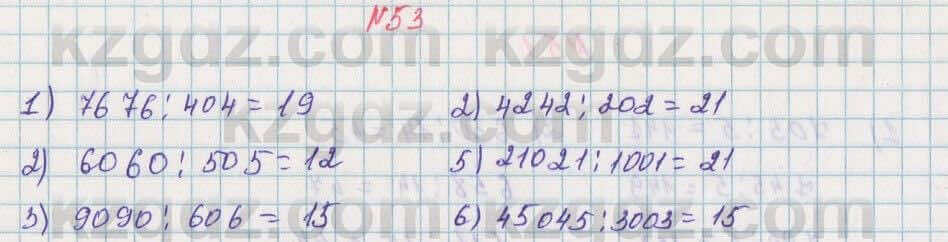 №53
kzgdz.com kzgdz.com
1) 7676:404=19 2) 4242:202=21
kzgdz.com
2) 6060:505=12 5) 21021:1001=21
3) 9090:606=15 6) 45045:3003=15
kzgdz.com kzgdz.com